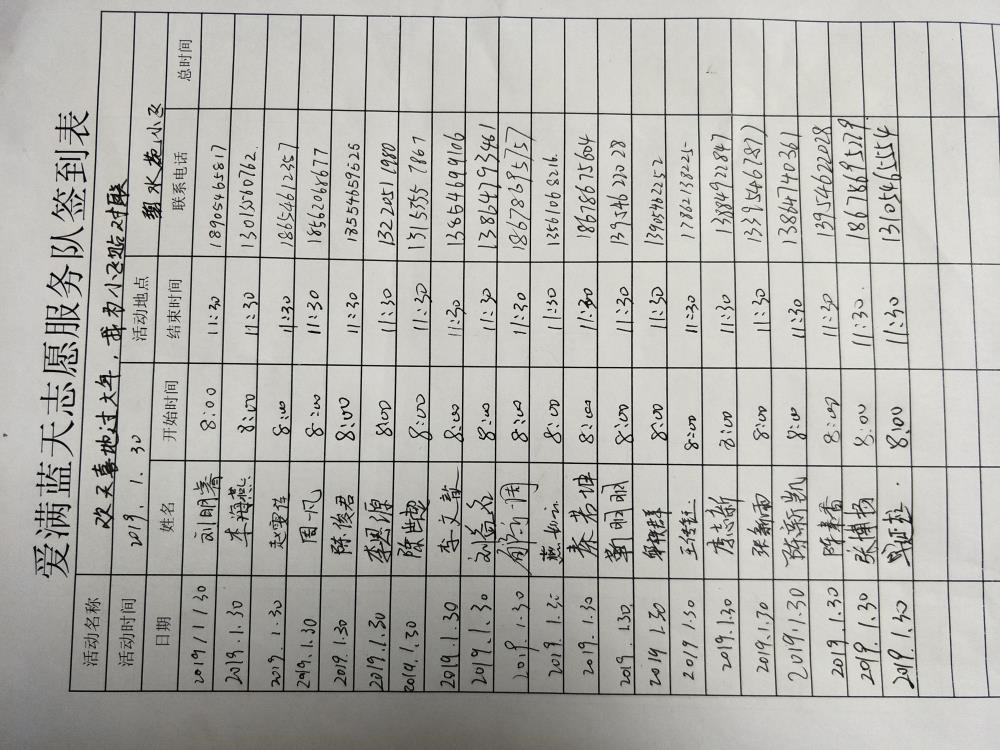 爱满蓝天志愿服务队签到表
活动名称 欢天喜地过大年，
活动时间 2019.1.30 活动地点 小区
日期 姓名 开始时间 结束时间 联系电话 总时间
2019/1/30 刘明睿 8:00 11:30 18905465817
2019.1.30 李海燕 8:00 11:30 13013560762
2019.1.30 赵雪莲 8:00 11:30 18654612357
2019.1.30 周凡 8:00 11:30 18562068677
2019.1.30 陈俊君 8:00 11:30 18554659525
2019.1.30 李思源 8:00 11:30 13220511980
2019.1.30 8:00 11:30 13153557867
2019.1.30 李文歆 8:00 11:30 13854699106
2019.1.30 8:00 11:30 13864793461
2019.1.30 8:00 11:30 18678695757
2019.1.30 8:00 11:30 13561068216
2019.1.30 8:00 11:30 18678675604
2019.1.30 靳明明 8:00 11:30 13954622028
2019.1.30 8:00 11:30 13905462252
2019.1.30 8:00 11:30 17862138225
2019.1.30 8:00 11:30 13884921847
2019.1.30 8:00 11:30 13395467877
2019.1.30 陈新凯 8:00 11:30 13864740361
2019.1.30 8:00 11:30 13954622028
2019.1.30 张博翰 8:00 11:30 18678695279
2019.1.30 8:00 11:30 13105465554